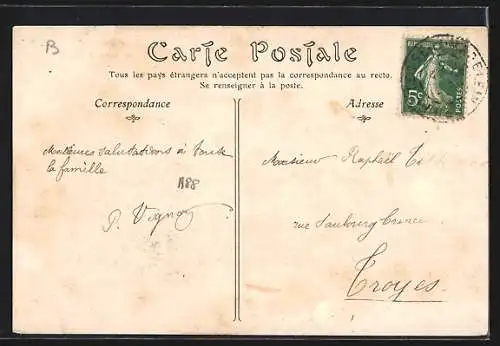 B
Carte Postale
Tous les pays étrangers n'acceptent pas la correspondance au recto.
Se renseigner à la poste.
Correspondance
Adresse
REPUBLIQUE FRANCAISE
5c
POSTES
Meilleures salutations à toute
la famille
A88
P. Vignay
Monsieur Raphaël
rue Faubourg
Troyes.